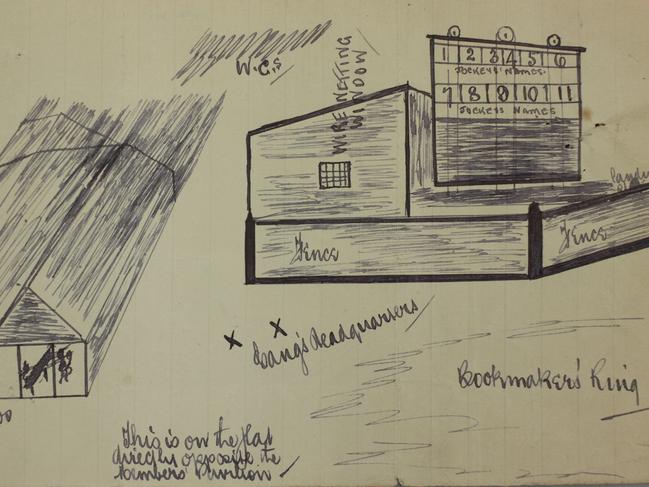 W.C.s
WIRE NETTING
WINDOW
1 2 3 4 5 6
JOCKEYS' NAMES.
7 8 9 10 11
JOCKEYS NAMES
Fence
Fence
x x
Gang's Headquarters
Bookmakers' Ring
This is on the flat
directly opposite the
Members'